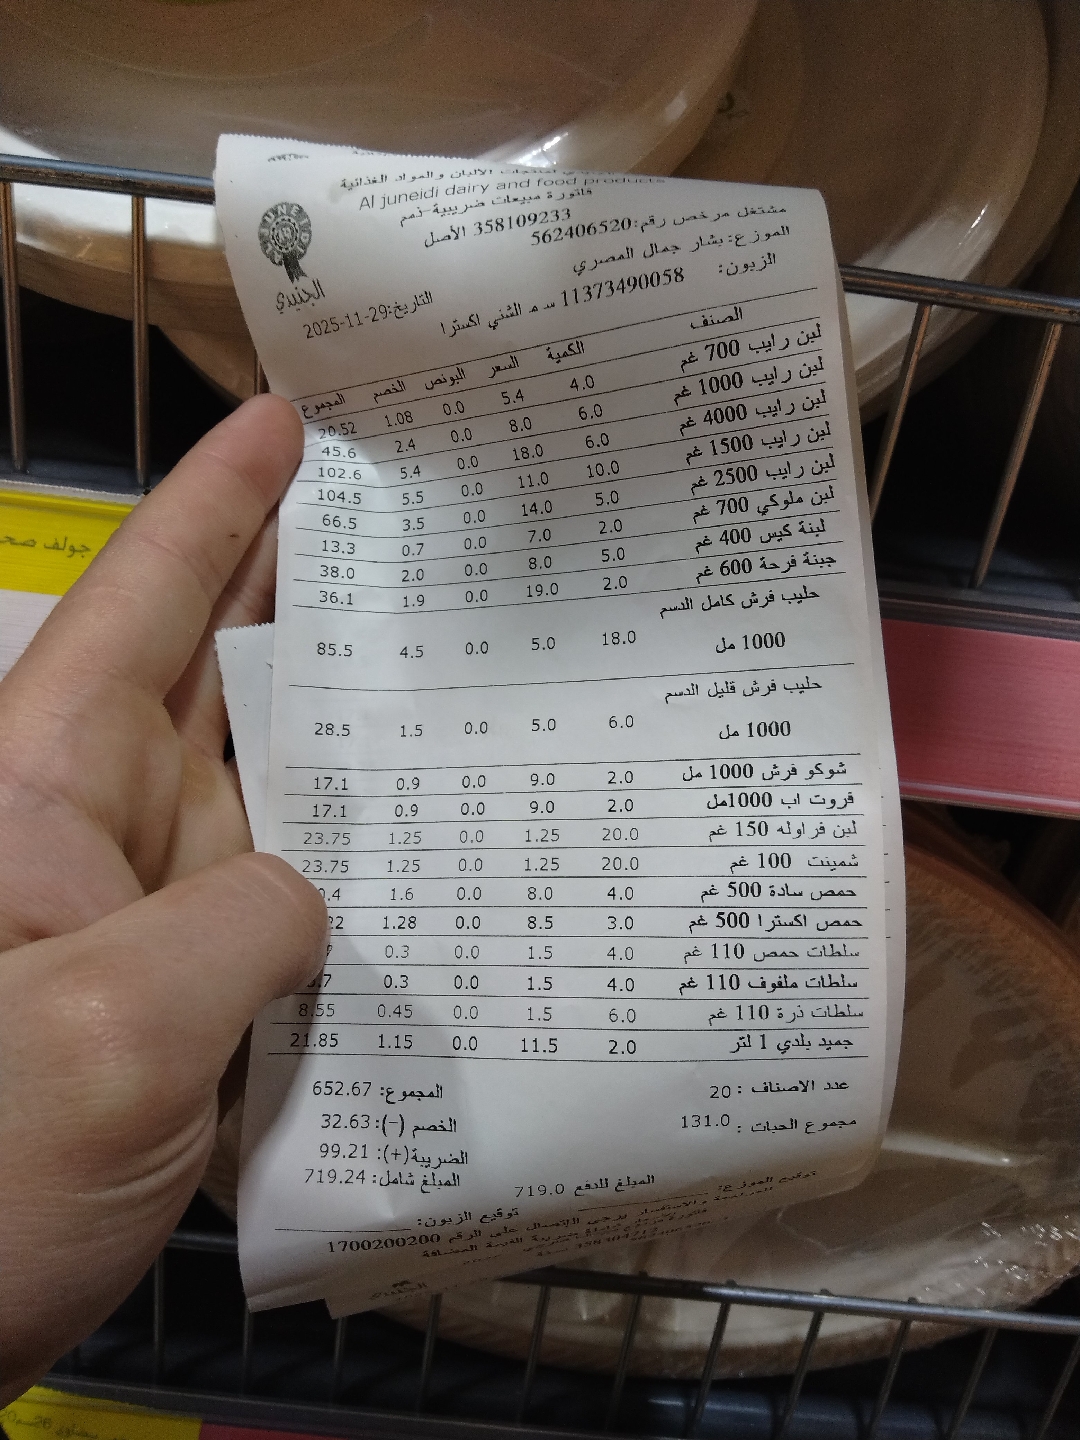 منتجات الالبان والمواد الغذائية
Al juneidi dairy and food products
فاتورة مبيعات ضريبية-ذمم
مشتغل مرخص رقم:562406520 358109233 الأصل
الموزع: بشار جمال المصري
الزبون: 11373490058 س م الشني اكسترا
التاريخ:2025-11-29
الجنيدي
الصنف الكمية السعر البونص الخصم المجموع
لبن رايب 700 غم 4.0 5.4 0.0 1.08 20.52
لبن رايب 1000 غم 6.0 8.0 0.0 2.4 45.6
لبن رايب 4000 غم 6.0 18.0 0.0 5.4 102.6
لبن رايب 1500 غم 10.0 11.0 0.0 5.5 104.5
لبن رايب 2500 غم 5.0 14.0 0.0 3.5 66.5
لبن ملوكي 700 غم 2.0 7.0 0.0 0.7 13.3
لبنة كيس 400 غم 5.0 8.0 0.0 2.0 38.0
جبنة فرحة 600 غم 2.0 19.0 0.0 1.9 36.1
حليب فرش كامل الدسم
1000 مل 18.0 5.0 0.0 4.5 85.5
حليب فرش قليل الدسم
1000 مل 6.0 5.0 0.0 1.5 28.5
شوكو فرش 1000 مل 2.0 9.0 0.0 0.9 17.1
فروت اب 1000مل 2.0 9.0 0.0 0.9 17.1
لبن فراوله 150 غم 20.0 1.25 0.0 1.25 23.75
شمينت 100 غم 20.0 1.25 0.0 1.25 23.75
حمص سادة 500 غم 4.0 8.0 0.0 1.6 0.4
حمص اكسترا 500 غم 3.0 8.5 0.0 1.28 22
سلطات حمص 110 غم 4.0 1.5 0.0 0.3
سلطات ملفوف 110 غم 4.0 1.5 0.0 0.3 .7
سلطات ذرة 110 غم 6.0 1.5 0.0 0.45 8.55
جميد بلدي 1 لتر 2.0 11.5 0.0 1.15 21.85
عدد الاصناف : 20 المجموع: 652.67
مجموع الحبات : 131.0 الخصم (-): 32.63
الضريبة(+): 99.21
المبلغ للدفع 719.0 المبلغ شامل: 719.24
توقيع الموزع:
توقيع الزبون:
للمراجعة والاستفسار يرجى الإتصال على الرقم 1700200200
جولف صح